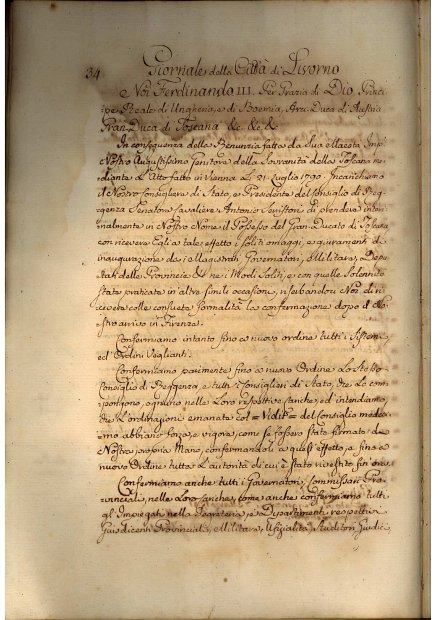 34
Giornale della Città di Livorno
Noi Ferdinando III. Per Grazia di Dio Princi
pe Reale di Ungheria, e di Boemia, Arci-Duca di Austria
Gran-Duca di Toscana &c &c &c
In conseguenza della Renunzia fatta da Sua Maestà Imp.
Nostro Augustissimo Genitore della Sovranità della Toscana me
diante l'Atto fatto in Vienna li 21. Luglio 1790. Incarichiamo
il Nostro Consigliere di Stato, e Presidente del Consiglio di Reg
genza Senatore Cavaliere Antonio Serristori di prendere inter
inalmente in Nostro Nome il Possesso del Gran-Ducato di Toscana
con ricevere Egli a tale effetto i soliti omaggi, e giuramenti di
inaugurazione dei Magistrati, Governatori, Militare, e Depu
tati delle Provincie ne i Modi Soliti, e con quelle Solennità
state praticate in altre simili occasioni, riserbandoci Noi di ri
cevere colle consuete formalità la confermazione dopo il No
stro arrivo in Firenze.
Confermiamo intanto fino a nuovo ordine tutti i Sistemi
ed Ordini Veglianti.
Confermiamo parimente fino a nuovo Ordine lo Stesso
Consiglio di Reggenza e tutti i Consiglieri di Stato, che lo com
pongono, ognuno nelle Loro respettive Cariche, ed intendiamo,
che l'ordinazioni emanate col = Vidit = del Consiglio mede
mo abbiano forza, e vigore, come se fossero state firmate di
Nostra propria Mano, confermandoli a quest'effetto, e fino a
nuovo Ordine tutta l'autorità di cui è stato rivestito fin ora.
Confermiamo anche tutti i Governatori, Commissari Pro
vinciali, nelle Loro Cariche, come anche confermiamo tutti
gl'Impiegati nella Segreteria, e Dipartimenti respettivi
Giusdicenti Provinciali, Militare, Ufizialità, Auditori Giudici,